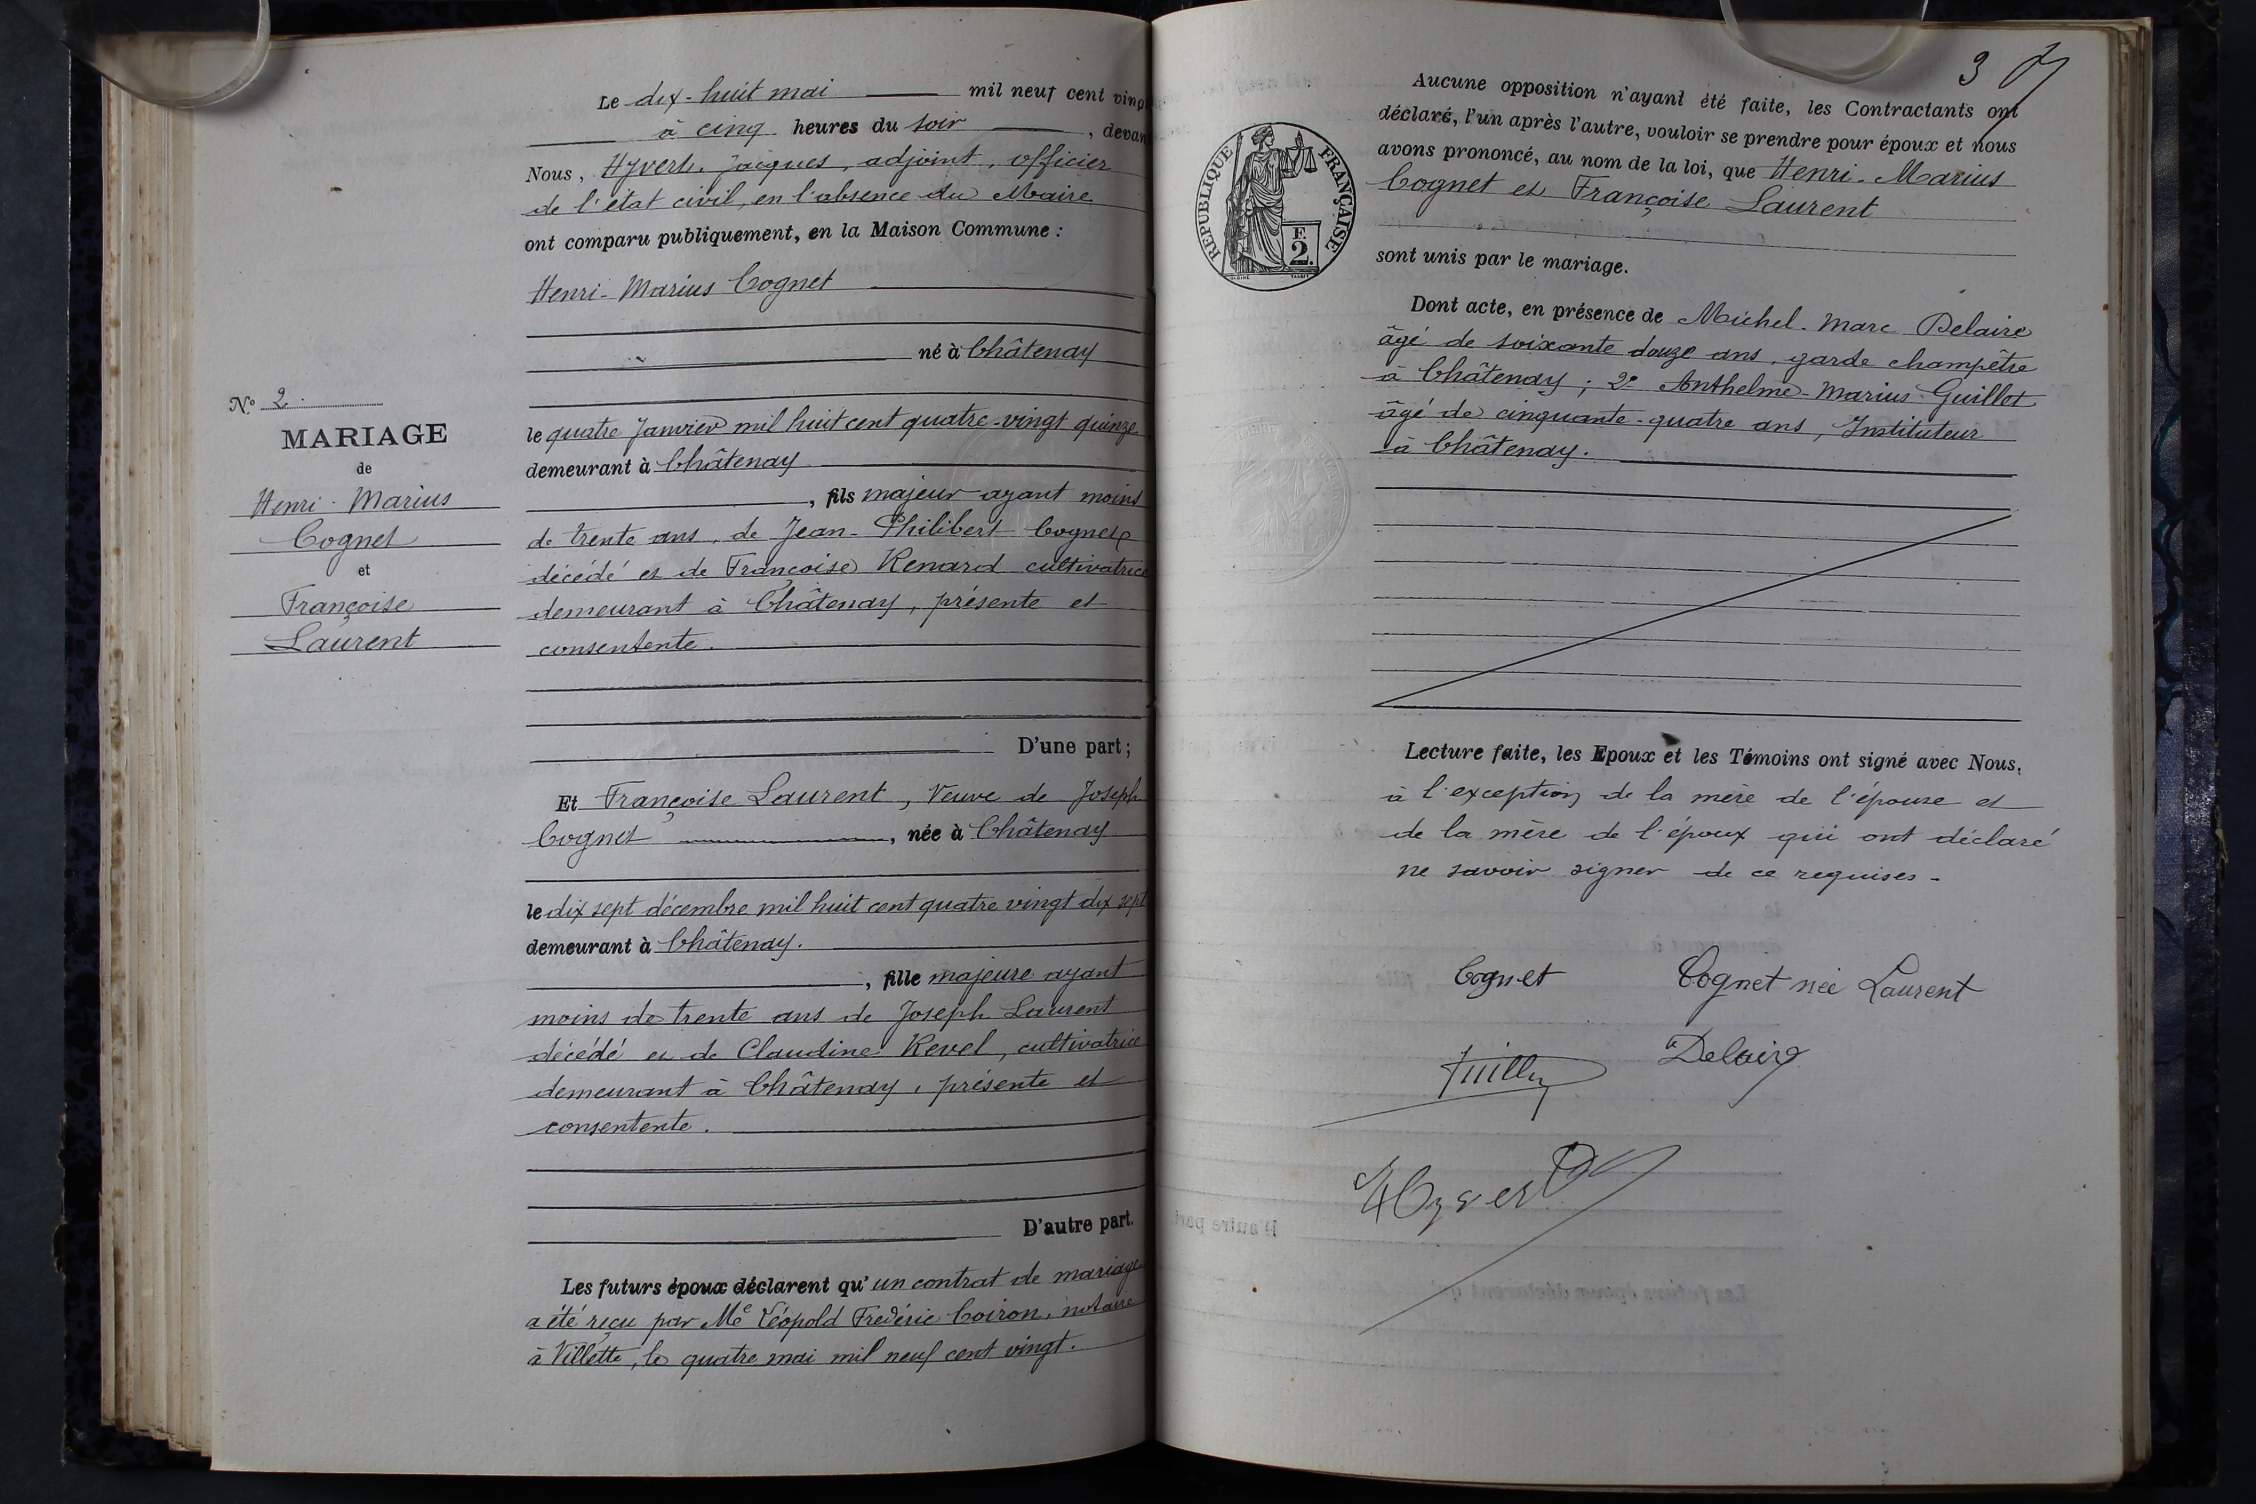 Le dix-huit mai mil neuf cent vingt
à cinq heures du soir , devan
Nous, Hyvert, Jacques, adjoint, officier
de l'état civil, en l'absence du Maire
ont comparu publiquement, en la Maison Commune :
Henri-Marius Cognet
né à Châtenay
le quatre Janvier mil huit cent quatre-vingt quinze
demeurant à Châtenay
, fils majeur ayant moins
de trente ans, de Jean-Philibert Cognet
décédé et de Françoise Renard cultivatrice
demeurant à Châtenay, présente et
consentente.
D'une part ;
Et Françoise Laurent, Veuve de Joseph
Cognet , née à Châtenay
le dix sept décembre mil huit cent quatre vingt dix sept
demeurant à Châtenay.
, fille majeure ayant
moins de trente ans de Joseph Laurent
décédé et de Claudine Revel, cultivatrice
demeurant à Châtenay, présente et
consentente.
D'autre part.
Les futurs époux déclarent qu' un contrat de mariage
a été reçu par Me Léopold Frédéric Coiron, notaire
à Villette, le quatre mai mil neuf cent vingt.
N.° 2.
MARIAGE
de
Henri-Marius
Cognet
et
Françoise
Laurent
3
Aucune opposition n'ayant été faite, les Contractants ont
déclaré, l'un après l'autre, vouloir se prendre pour époux et nous
avons prononcé, au nom de la loi, que Henri-Marius
Cognet et Françoise Laurent
sont unis par le mariage.
Dont acte, en présence de Michel-Marc Delaire
âgé de soixante douze ans, garde champêtre
à Châtenay ; 2° Anthelme-Marius Guillot
âgé de cinquante-quatre ans, Instituteur
à Châtenay.
Lecture faite, les Epoux et les Témoins ont signé avec Nous,
à l'exception de la mère de l'épouse et
de la mère de l'époux qui ont déclaré
ne savoir signer de ce requises.
Cognet
Cognet née Laurent
Delaire
RÉPUBLIQUE FRANÇAISE
F.
2.